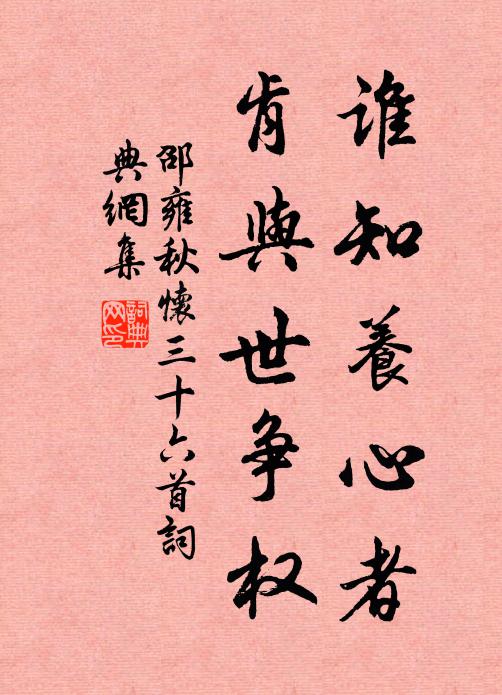 谁知養心者
肯與世争权
邵雍秋懷三十六首詞
典網集
詞典网印